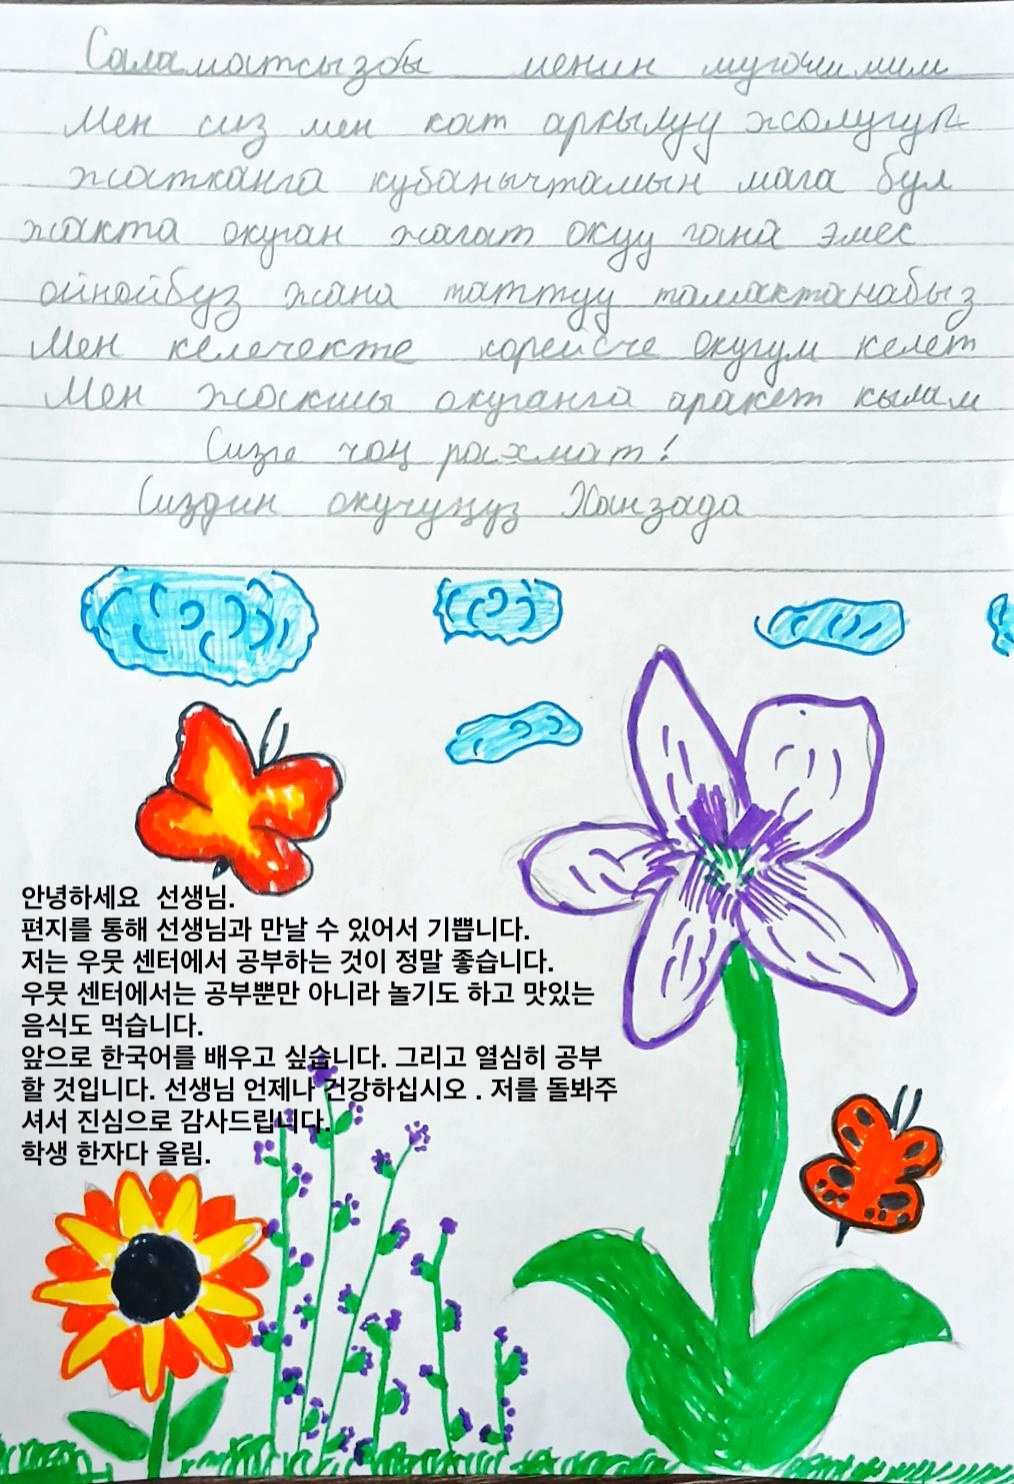 Саламатсызбы менин мугалимим
Мен сиз мен кат аркылуу жолугуп
жатканга кубанычтамын мага бул
жакта окуган жагат окуу гана эмес
ойнойбуз жана таттуу тамактанабыз
Мен келечекте корейсче окугум келет
Мен жакшы окуганга аракет кылам
Сизге чоң рахмат!
Сиздин окучуңуз Ханзада
안녕하세요 선생님.
편지를 통해 선생님과 만날 수 있어서 기쁩니다.
저는 우뭇 센터에서 공부하는 것이 정말 좋습니다.
우뭇 센터에서는 공부뿐만 아니라 놀기도 하고 맛있는
음식도 먹습니다.
앞으로 한국어를 배우고 싶습니다. 그리고 열심히 공부
할 것입니다. 선생님 언제나 건강하십시오 . 저를 돌봐주
셔서 진심으로 감사드립니다.
학생 한자다 올림.